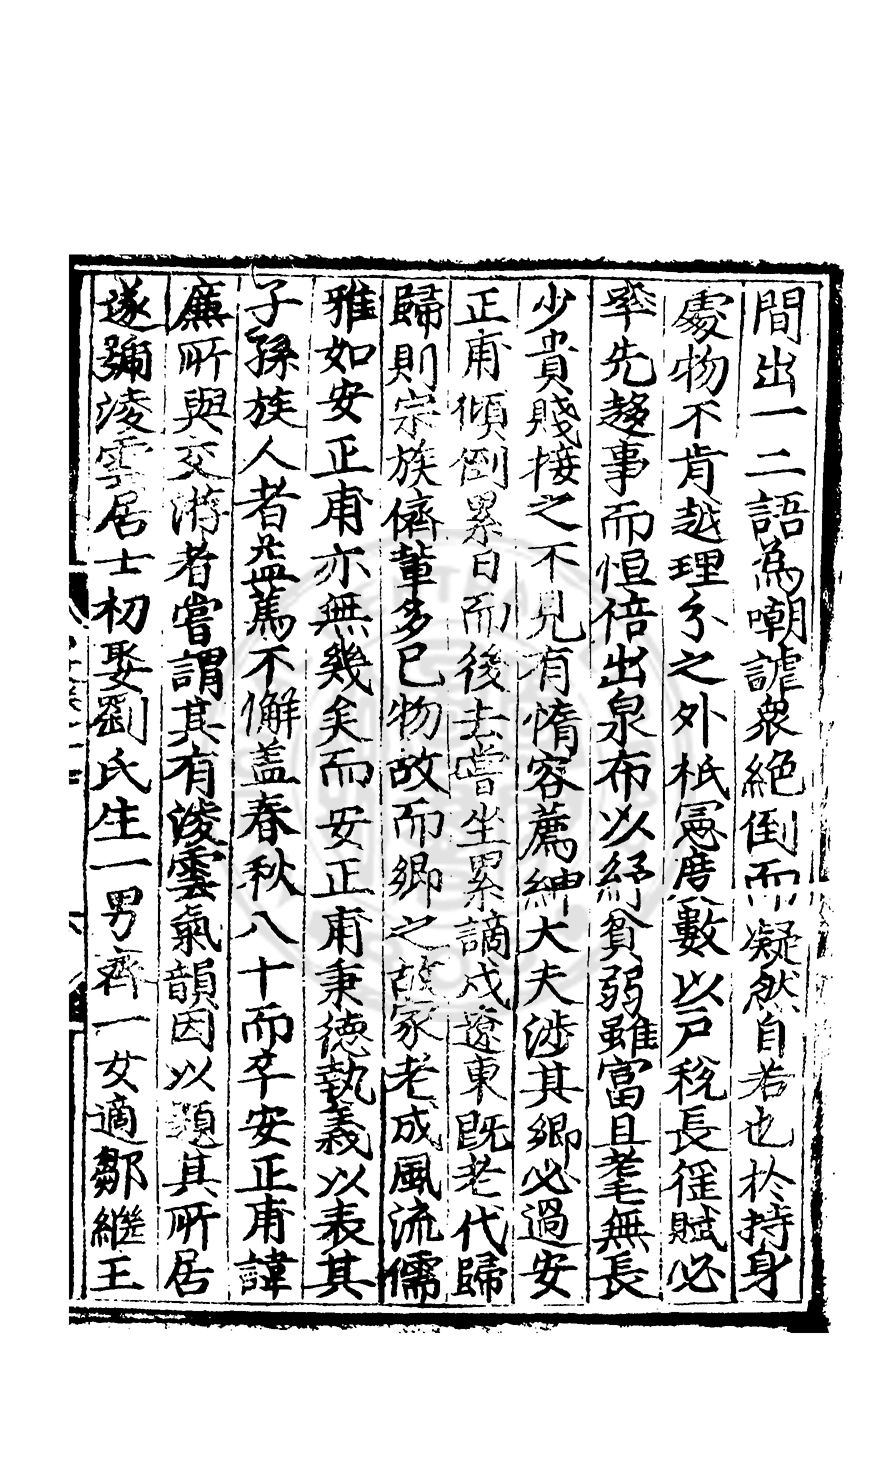 間出一二語為嘲謔衆絶倒而凝然自若也於持身
處物不肯越理分之外柢憲度數以戸稅長徭賦必
率先趍事而恒倍出泉布以紓貧弱雖富且耄無長
少貴賤接之不見有惰容薦紳大夫涉其鄉必過安
正甫傾倒累日而後去嘗坐累謫戍遼東旣老代歸
歸則宗族儕輩多已物故而鄉之故家老成風流儒
雅如安正甫亦無幾矣而安正甫秉德執義以表其
子孫族人者益篤不懈盖春秋八十而卒安正甫諱
廉所與交游者嘗謂其有淩雲氣韻因以題其所居
遂號淩雲居士初娶劉氏生一男齊一女適鄒繼王